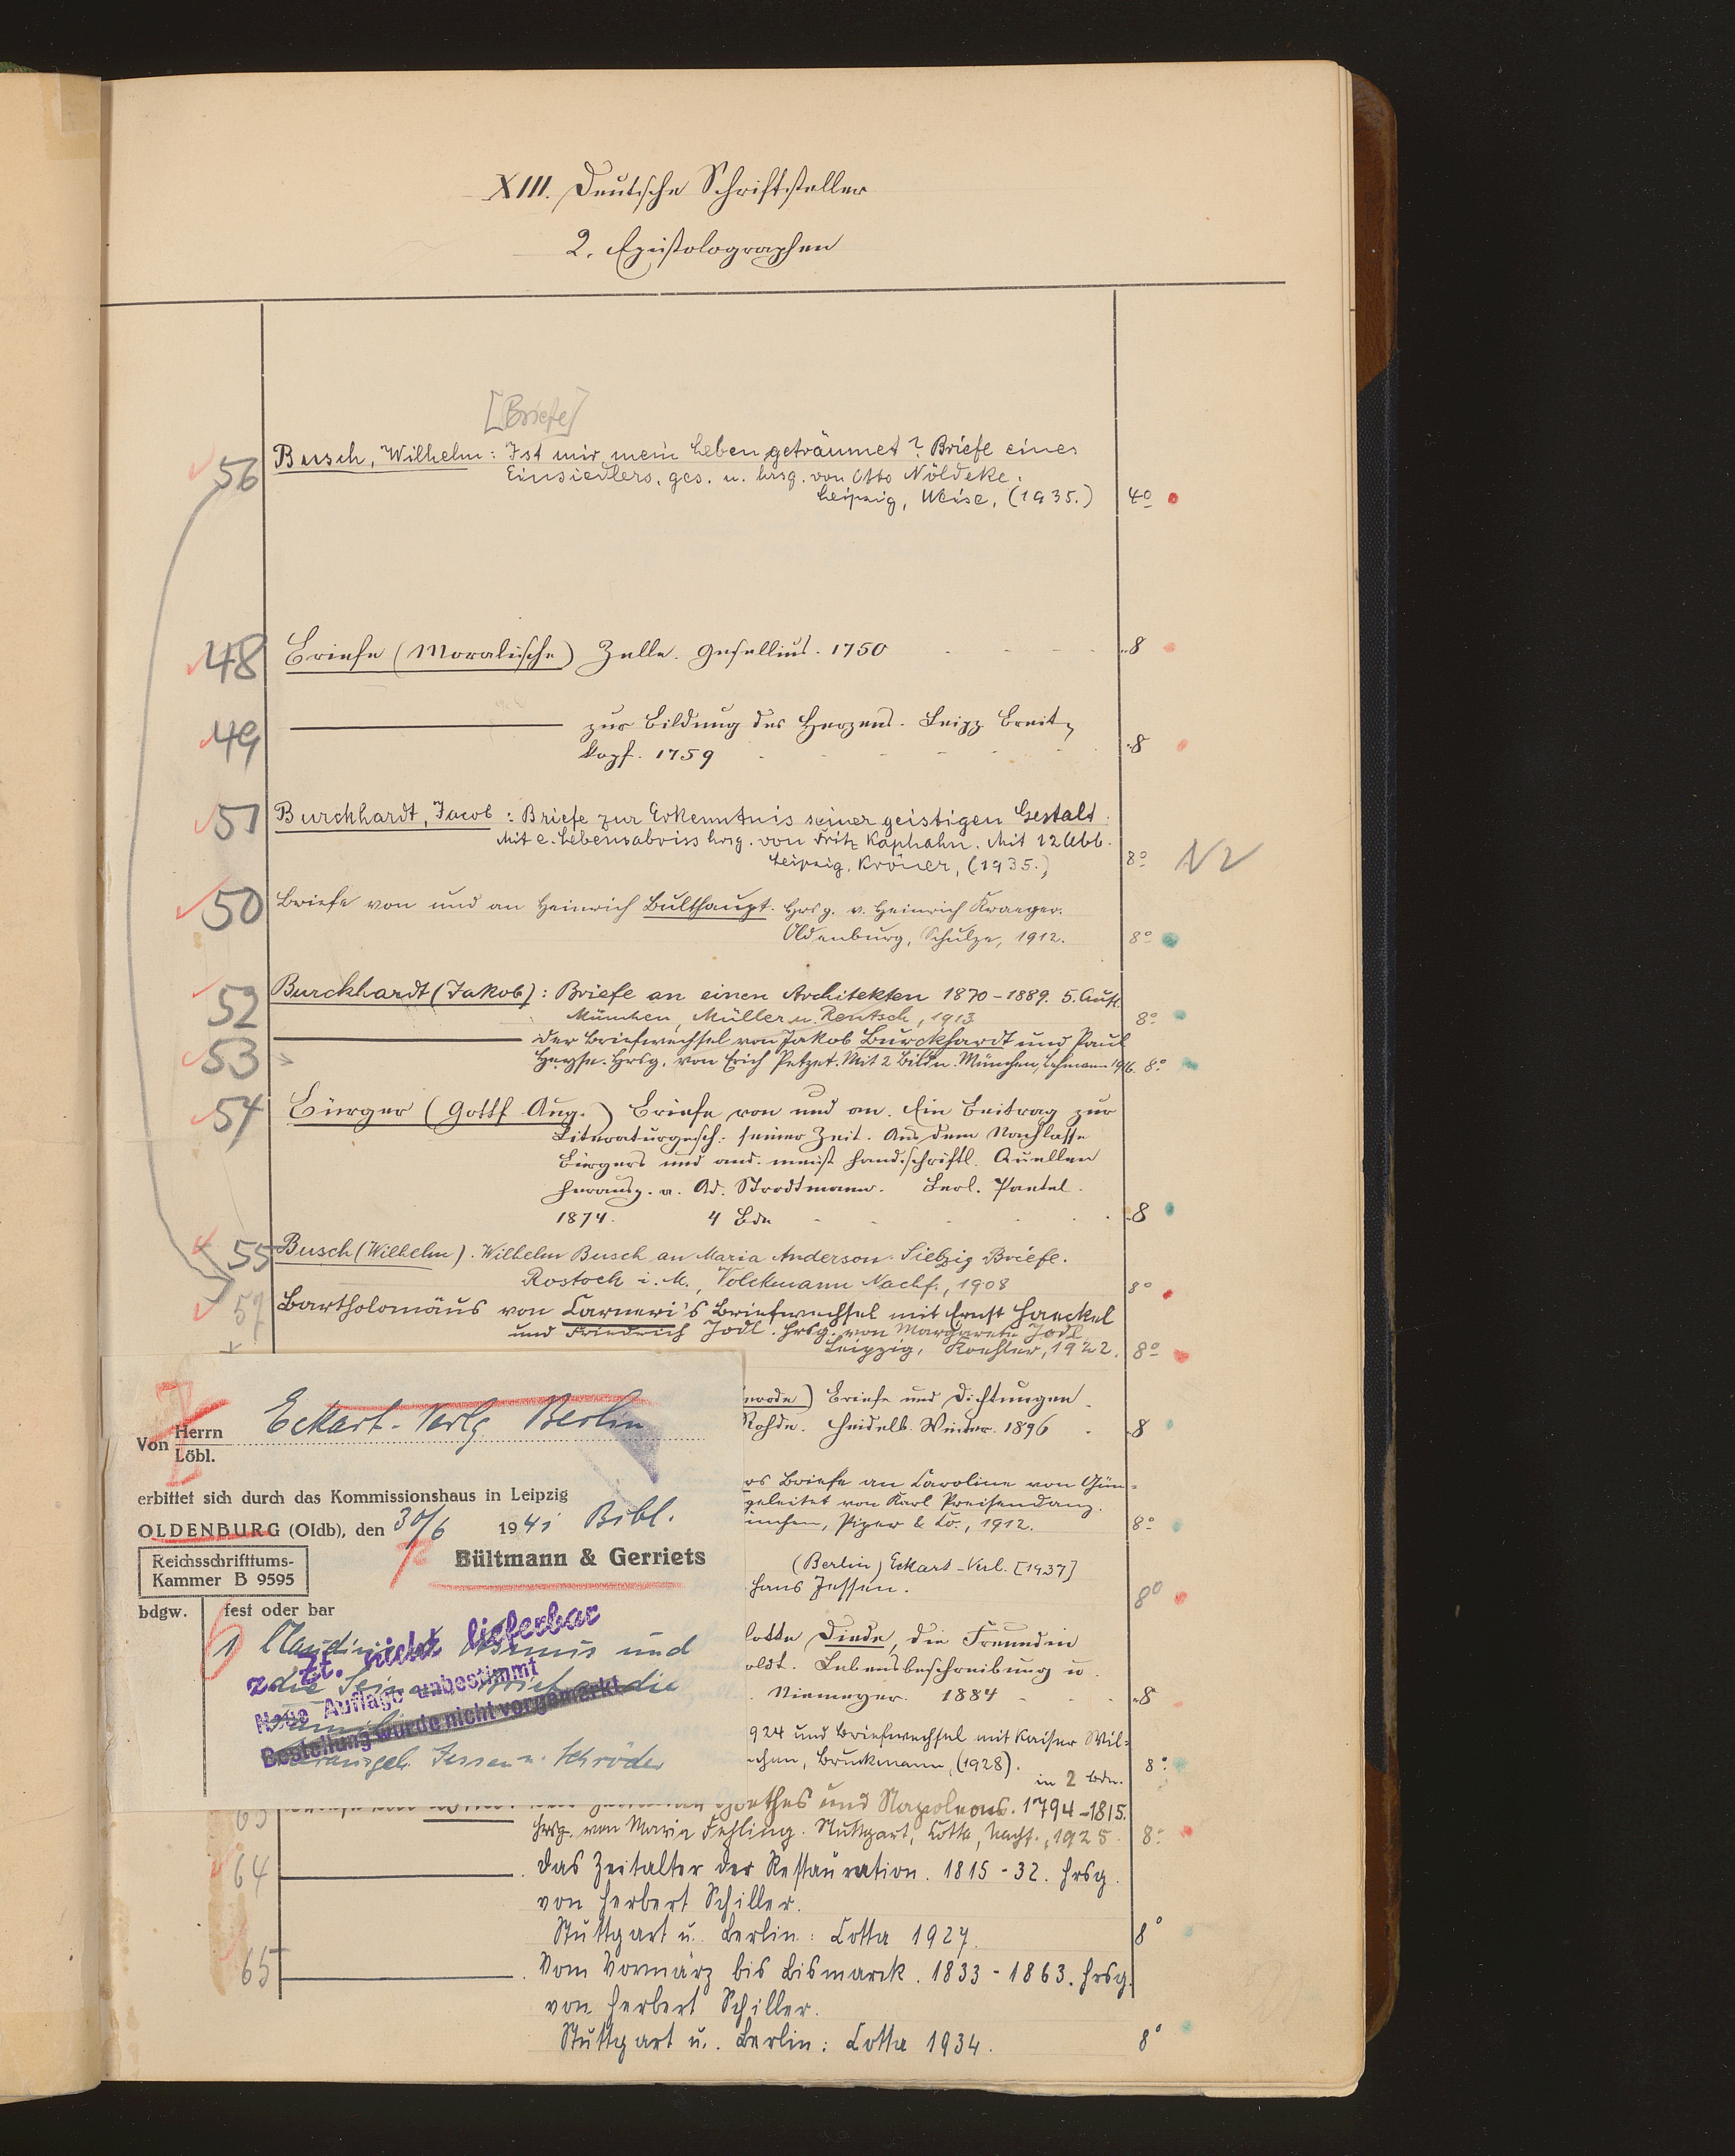 XIII. Deutsche Schriftsteller
2. Epistolographen
[Briefe]
56 Busch, Wilhelm: Ist mir mein Leben geträumet? Briefe eines
Einsiedlers, ges. u. hrsg. von Otto Nöldeke.
Leipzig, Weise, (1935.) 4º
48 Briefe (Moralische) Zelle. Gsellius. 1750 8
49 zur Bildung des Herzens. Leipz Breit
kopf. 1759 8
51 Burckhardt, Jacob: Briefe zur Erkenntnis seiner geistigen Gestalt.
Mit e. Lebensabriss hrsg. von Fritz Kaphahn. Mit 12 Abb.
Leipzig, Kröner, (1935.) 8º
50 Briefe von und an Heinrich Bulthaupt. Hrsg. v. Heinrich Kraeger.
Oldenburg, Schulze, 1912. 8º
52 Burckhardt (Jakob): Briefe an einen Architekten 1870-1889. 5. Aufl.
München, Müller u. Rentsch, 1913 8º
53 Der Briefwechsel von Jakob Burckhardt und Paul
Heyse. Hrsg. von Erich Petzet. Mit 2 Bildn. München, Lehmann 1916. 8º
54 Bürger (Gottf Aug.) Briefe von und an. Ein Beitrag zur
Literaturgesch. seiner Zeit. Aus dem Nachlasse
Bürgers und and. meist handschriftl. Quellen
herausg. v. Ad. Strodtmann. Berl. Paetel.
1874. 4 Bde 8
55 Busch (Wilhelm). Wilhelm Busch an Maria Anderson. Siebzig Briefe.
Rostock i. M., Volckmann Nachf., 1908 8º
57 Bartholomäus von Carneri's Briefwechsel mit Ernst Haeckel
und Friedrich Jodl. Hrsg. von Margarete Jodl
Leipzig, Koehler, 1922. 8º
erode) Briefe und Dichtungen.
Rohde. Heidelb. Winter. 1896 8
rs Briefe an Caroline von Gün=
geleitet von Karl Preisendanz.
ünchen, Piper & Co., 1912. 8º
(Berlin) Eckart-Verl. [1937]
Hans Jessen. 8º
lotte Diede, die Freundin
oldt. Lebensbeschreibung u.
Niemeyer. 1884 8
924 und Briefwechsel mit Kaiser Wil=
chen, Bruckmann, (1928). in 2 Bdn. 8º
Eckart-Verlg Berlin
Von Herrn
Löbl.
erbittet sich durch das Kommissionshaus in Leipzig
OLDENBURG (Oldb), den 30/6 1941 Bibl.
Reichsschrifttums-
Kammer B 9595
Bültmann & Gerriets
bdgw. fest oder bar
1 Claudius Asmus und
die Seinen Briefe an die
Familie
Herausgeb. Jessen u. Schröder
z. Zt. nicht lieferbar
Neue Auflage unbestimmt
Bestellung wurde nicht vorgemerkt
63 Goethes und Napoleons. 1794-1815.
Hrsg. von Maria Fehling. Stuttgart, Cotta, Nachf., 1925. 8º
64 Das Zeitalter der Restauration. 1815-32. Hrsg.
von Herbert Schiller.
Stuttgart u. Berlin: Cotta 1927. 8º
65 Vom Vormärz bis Bismarck. 1833-1863. Hrsg.
von Herbert Schiller.
Stuttgart u. Berlin: Cotta 1934. 8º